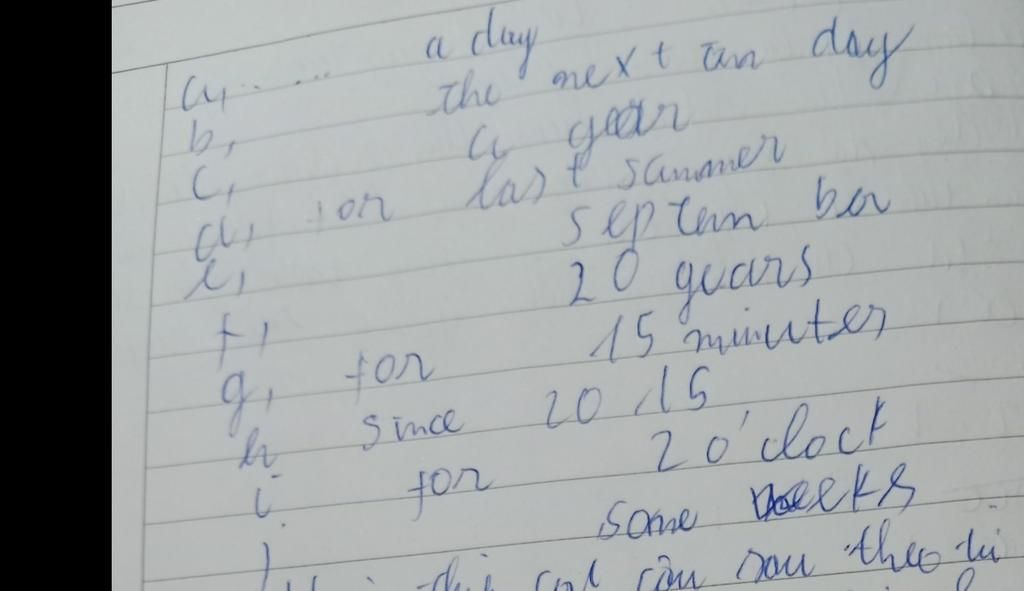 a, ...... a day
b, the next tan day
c, a year
d, for last summer
e, septem ber
f, 20 years
g, for 15 minutes
h since 2015
i for 2 o'clock
j some weeks
câu sau theo